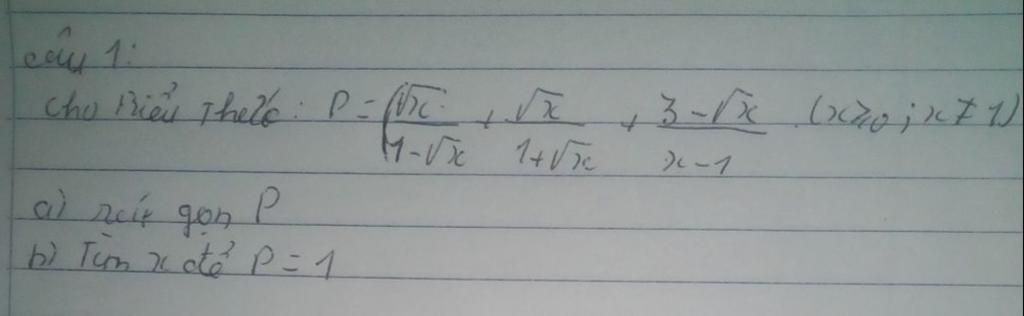 Câu 1:
Cho Biểu Thức: P = (√x / 1-√x + √x / 1+√x + 3-√x / x-1 (x≥0; x≠1)
a) rút gọn P
b) Tìm x để P = 1